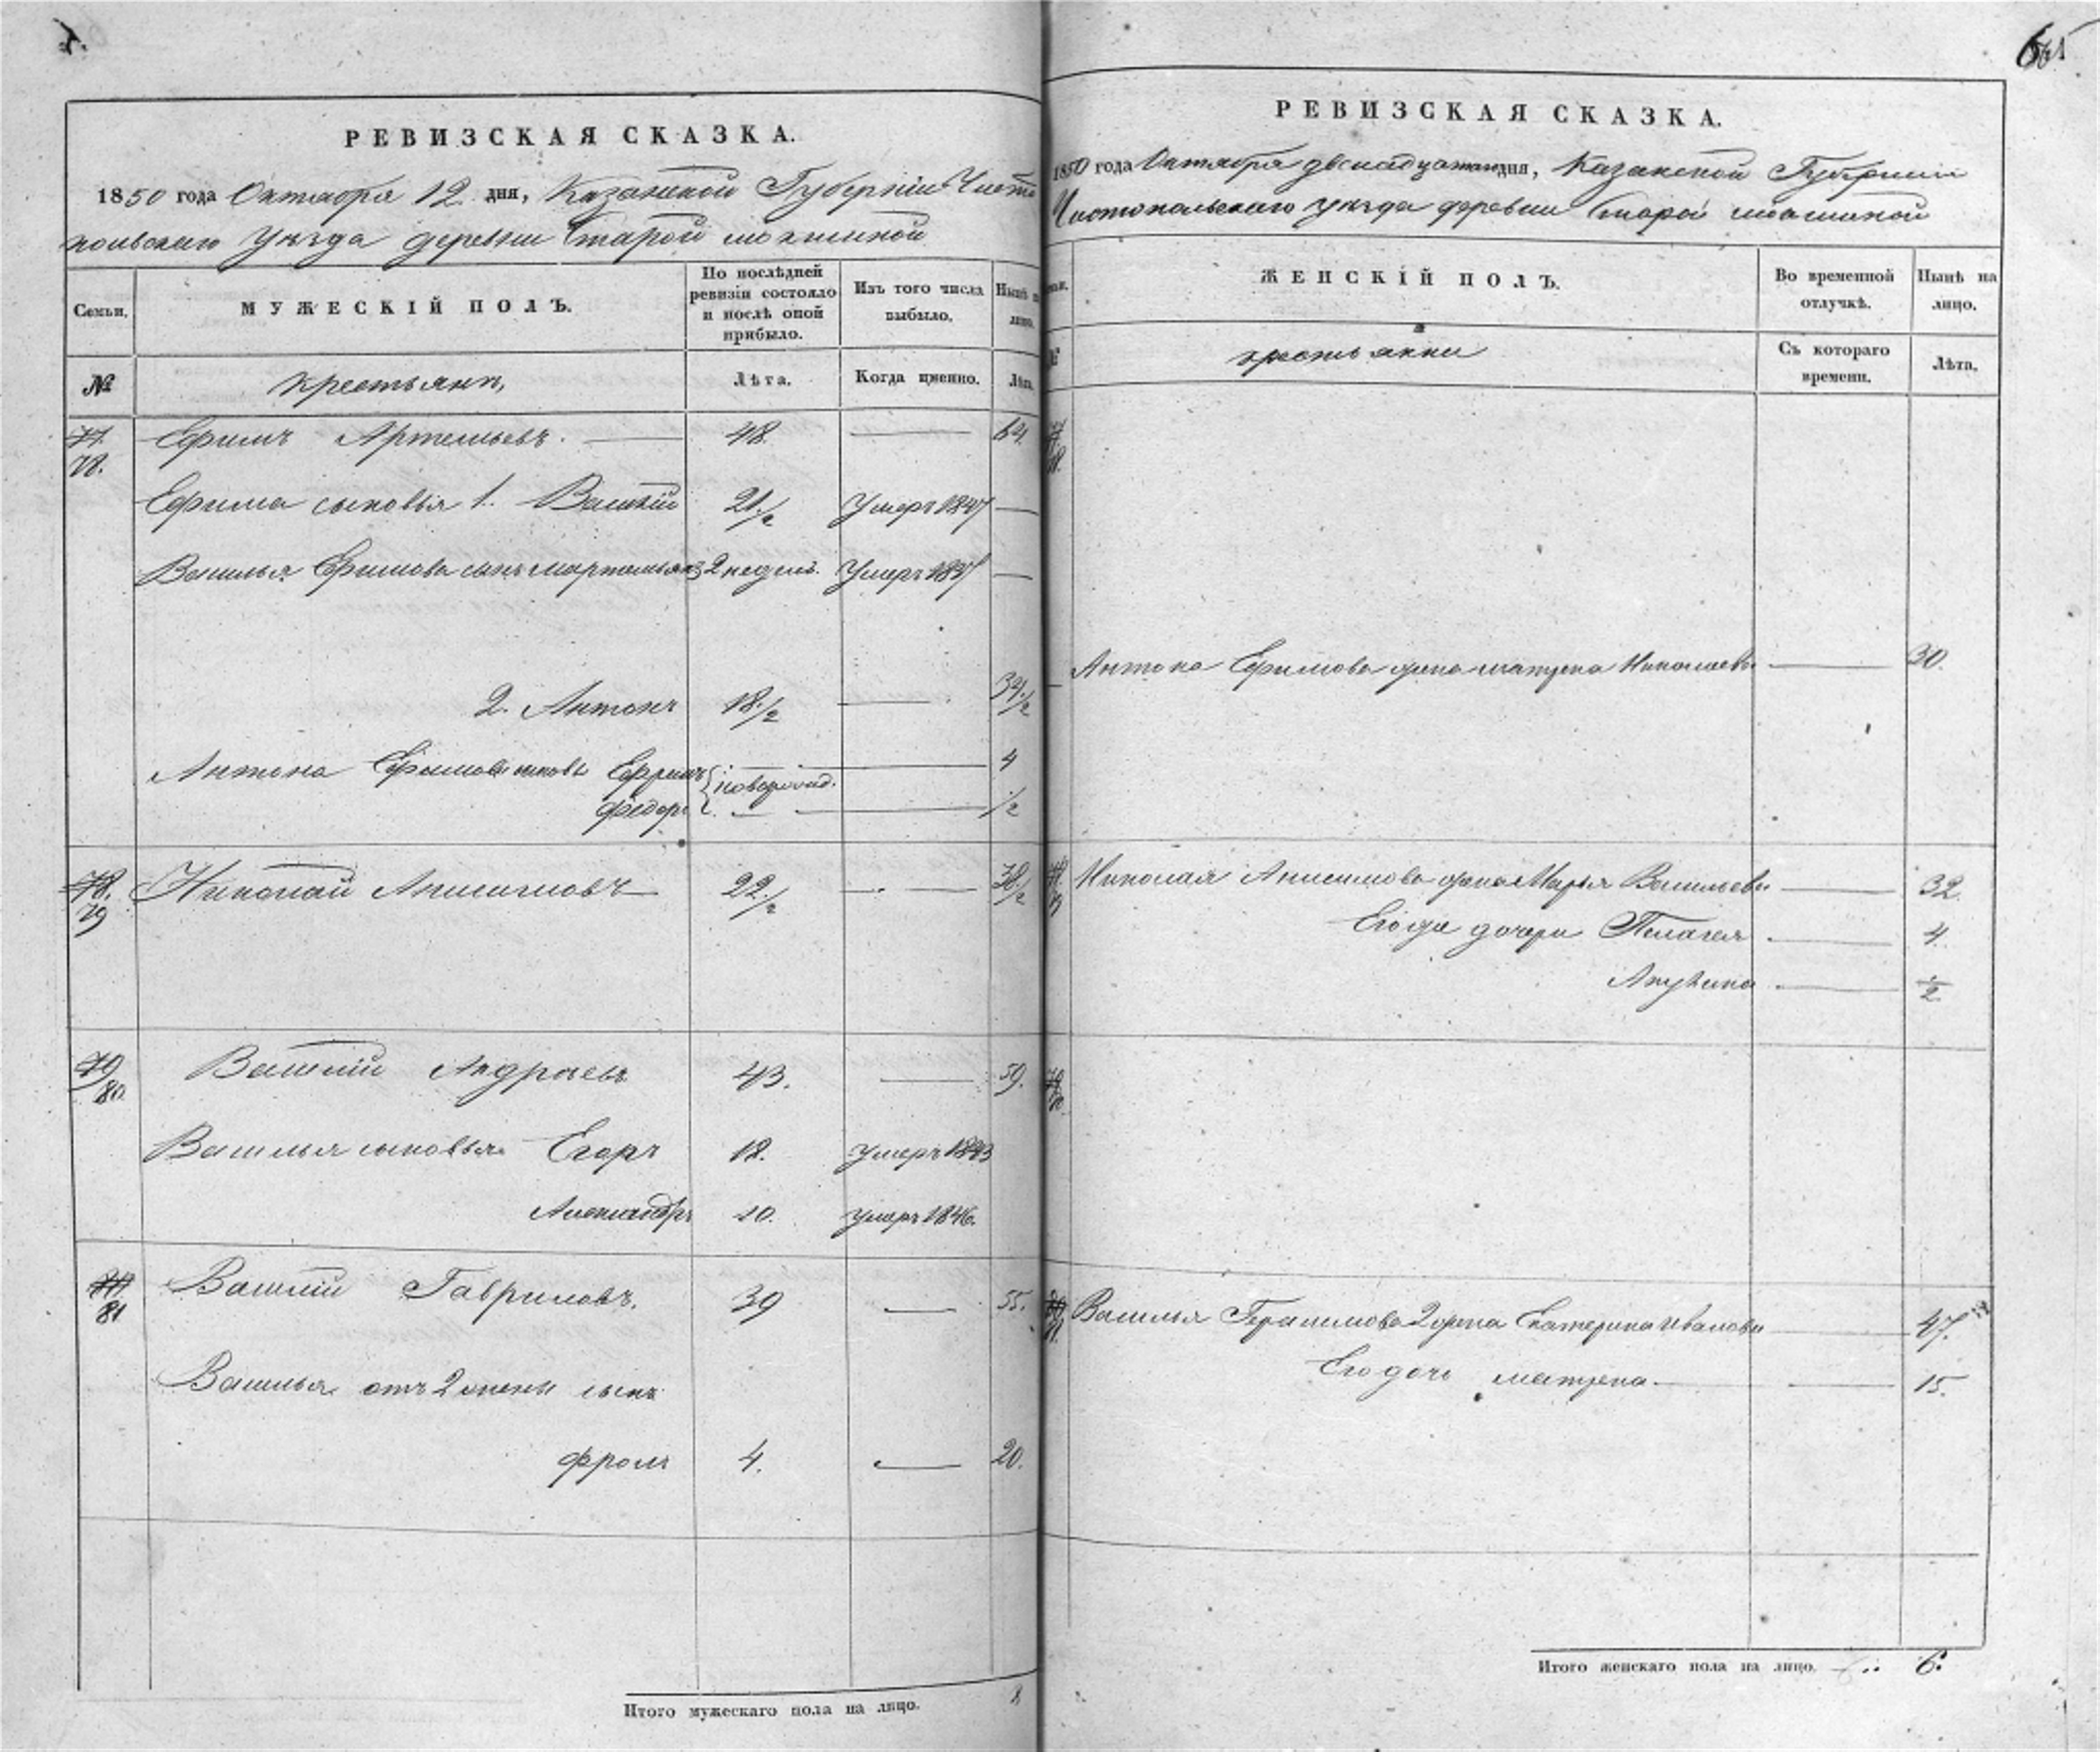 РЕВИЗСКАЯ СКАЗКА.
1850 года Октября 12 дня, Казанской Губернии Чисто
польскаго Уѣзда деревни Старой
Семьи.
МУЖЕСКІЙ ПОЛЪ.
По послѣдней ревизіи состояло и послѣ оной прибыло.
Изъ того числа выбыло.
Нынѣ на лицо.
№
крестьяне,
Лѣта.
Когда именно.
Лѣта.
77 78. Ефимъ Артемьевъ. 48. 64.
Ефима сыновья 1. Василій 21 1/2 Умеръ 1847
Василья Ефимова сынъ Мартемьянъ 2 недель. Умеръ 1837
2. Антонъ 18 1/2 34 1/2
Антона Ефимова сыновья Ефимъ новорожд. 4
Федоръ 1/2
78. 79 Николай Анисимовъ 22 1/2 38 1/2
79 80. Василій Андреевъ 43. 59.
Василья сыновья Егоръ 18. умеръ 1843
Александръ 10. умеръ 1846.
81 Василій Гавриловъ. 39 55.
Василья отъ 2 жены сынъ
Фролъ 4. 20.
Итого мужескаго пола на лицо. 8
РЕВИЗСКАЯ СКАЗКА.
1850 года Октября двенадцатаго дня, Казанской Губернии
Чистопольскаго уѣзда деревни Старой
ЖЕНСКІЙ ПОЛЪ.
Во временной отлучкѣ.
Нынѣ на лицо.
крестьянки
Съ котораго времени.
Лѣта.
Антона Ефимова жена Матрена Николаева 30.
Николая Анисимова жена Марья Васильева 32
Его же дочери Пелагея 4.
Акулина 1/2
Василья Герасимова 2 жена Екатерина Иванова 47.
Его дочь Матрена 15.
Итого женскаго пола на лицо. 6.